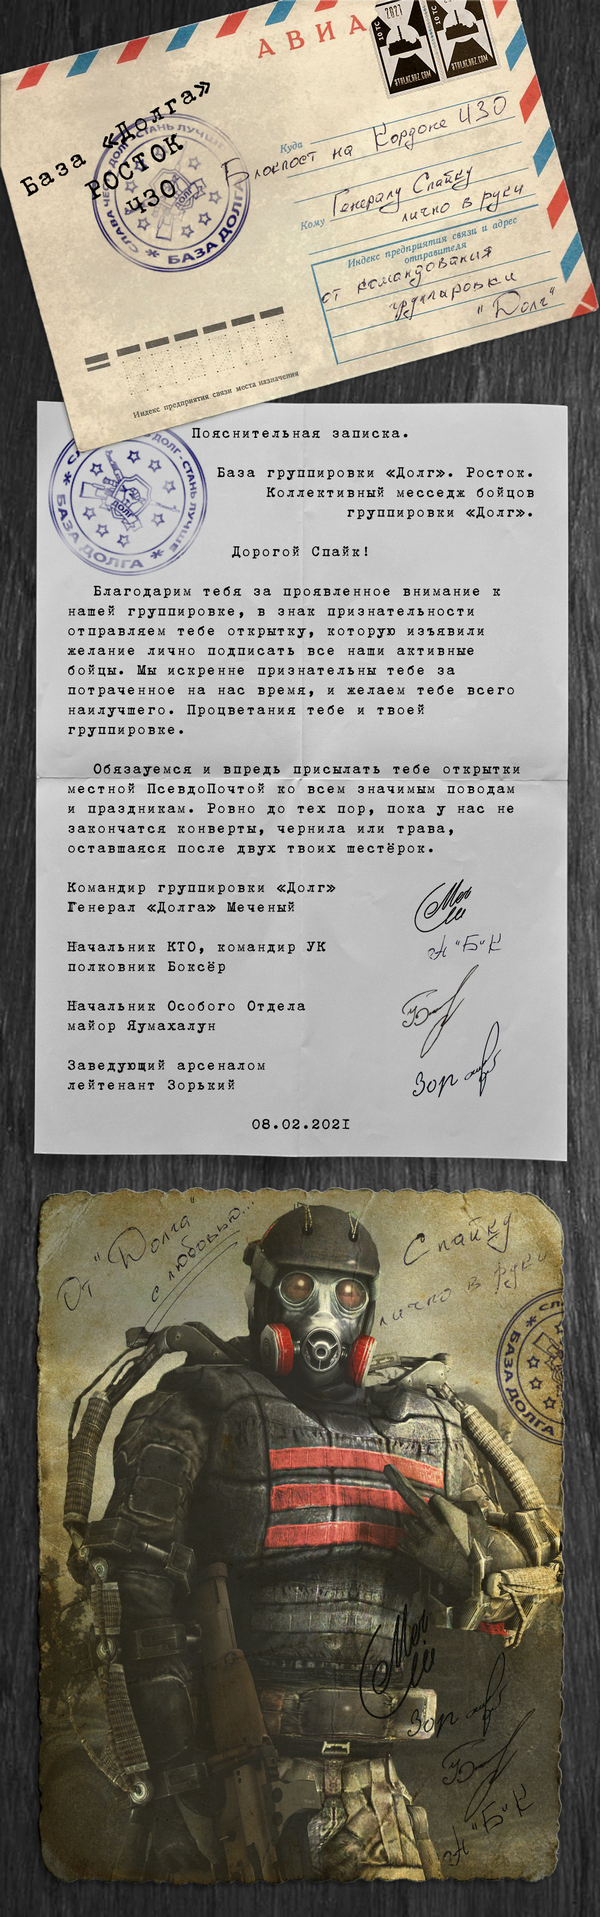 АВИА
2021
STALCALZONE.COM
База «Долга»
РОСТОК
ЧЗО
БАЗА ДОЛГА
Куда
Блокпост на Кордоне ЧЗО
Кому
Генералу Спайку
лично в руки
Индекс предприятия связи и адрес
отправителя
от командования
группировки
"Долг"
Индекс предприятия связи места назначения
Пояснительная записка.
База группировки «Долг». Росток.
Коллективный месседж бойцов
группировки «Долг».
ДОЛГ-СТАНЬ ЛУЧШЕ
ДОЛГ
БАЗА ДОЛГА
Дорогой Спайк!
Благодарим тебя за проявленное внимание к
нашей группировке, в знак признательности
отправляем тебе открытку, которую изъявили
желание лично подписать все наши активные
бойцы. Мы искренне признательны тебе за
потраченное на нас время, и желаем тебе всего
наилучшего. Процветания тебе и твоей
группировке.
Обязауемся и впредь присылать тебе открытки
местной ПсевдоПочтой ко всем значимым поводам
и праздникам. Ровно до тех пор, пока у нас не
закончатся конверты, чернила или трава,
оставшаяся после двух твоих шестёрок.
Командир группировки «Долг»
Генерал «Долга» Меченый
Начальник КТО, командир УК
полковник Боксёр
Начальник Особого Отдела
майор Яумахалун
Заведующий арсеналом
лейтенант Зоркий
08.02.2021
От "Долга"
с любовью...
Спайку
лично в руки
БАЗА ДОЛГА